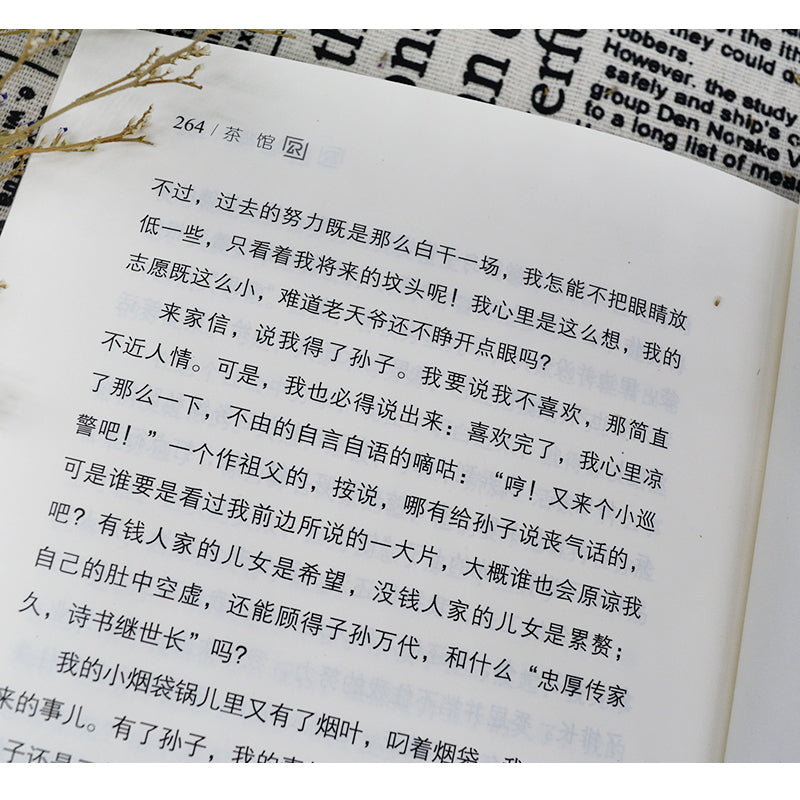 264 / 茶 馆
不过，过去的努力既是那么白干一场，我怎能不把眼睛放
低一些，只看着我将来的坟头呢！我心里是这么想，我的
志愿既这么小，难道老天爷还不睁开点眼吗？
来家信，说我得了孙子。我要说我不喜欢，那简直
不近人情。可是，我也必得说出来：喜欢完了，我心里凉
了那么一下，不由的自言自语的嘀咕：“哼！又来个小巡
警吧！”一个作祖父的，按说，哪有给孙子说丧气话的，
可是谁要是看过我前边所说的一大片，大概谁也会原谅我
吧？有钱人家的儿女是希望，没钱人家的儿女是累赘；
自己的肚中空虚，还能顾得子孙万代，和什么“忠厚传家
久，诗书继世长”吗？
我的小烟袋锅儿里又有了烟叶，叼着烟袋，我
来的事儿。有了孙子，我的
子还是
they could
robbers.
However. the study
safely and ship's
group Den Norske V
to a long list of